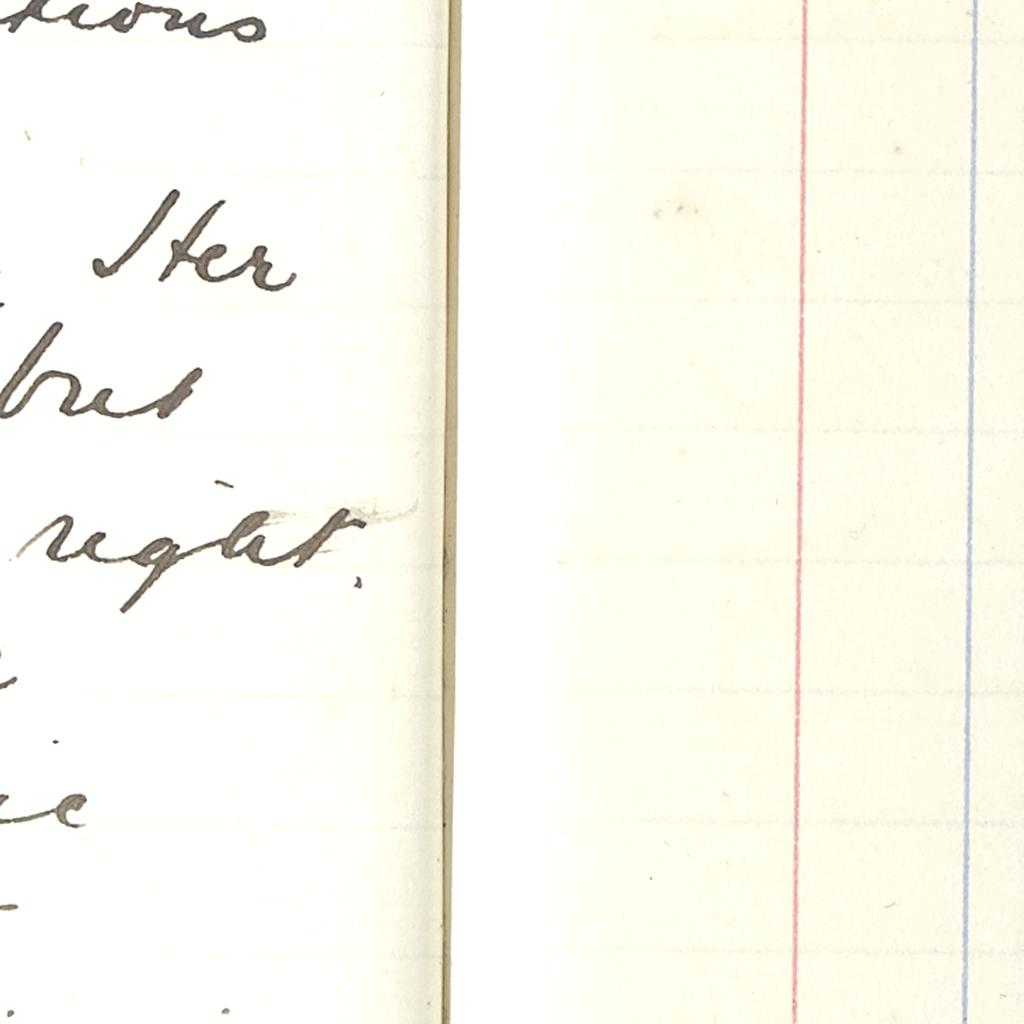 tions
Her
but
right.
ic